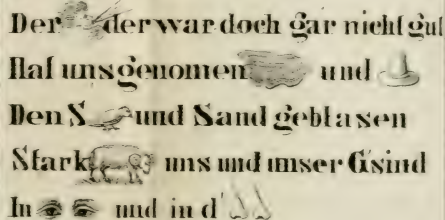 Der der war doch gar nicht gut
Hat uns genomen und
Den S und Sand geblasen
Stark uns und unser Gsind
In und in d'